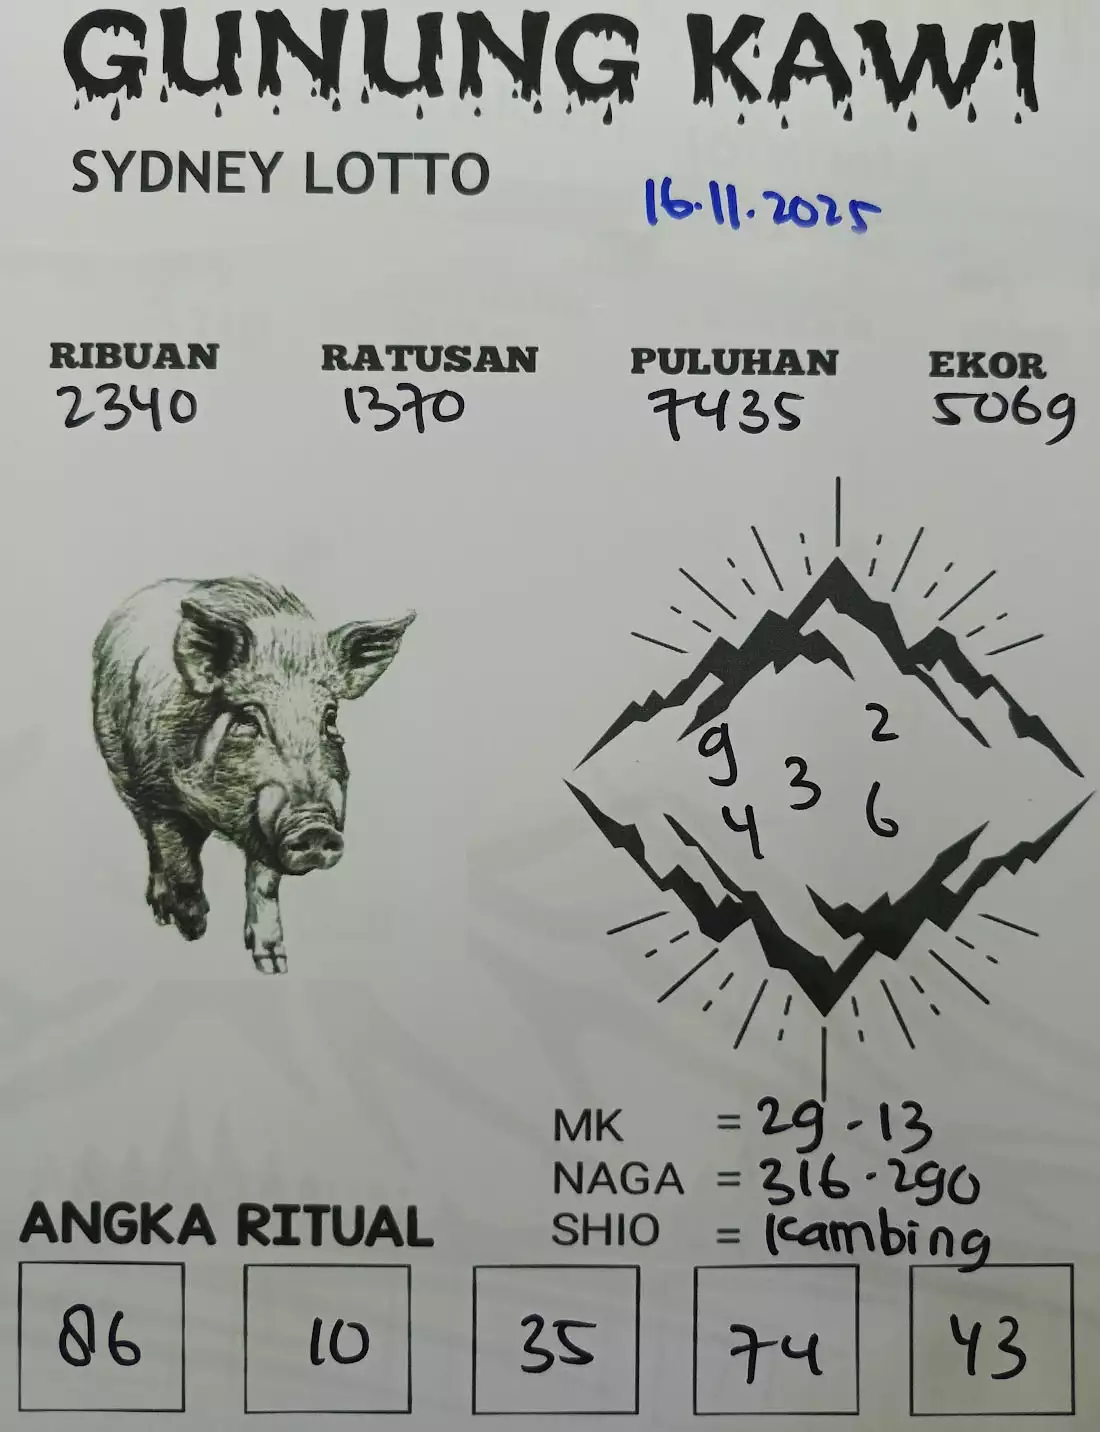 GUNUNG KAWI
SYDNEY LOTTO
16.11.2025
RIBUAN RATUSAN PULUHAN EKOR
2340 1370 7435 5069
9 2
3
4 6
MK = 29 - 13
NAGA = 316 - 290
SHIO = Kambing
ANGKA RITUAL
86 10 35 74 43